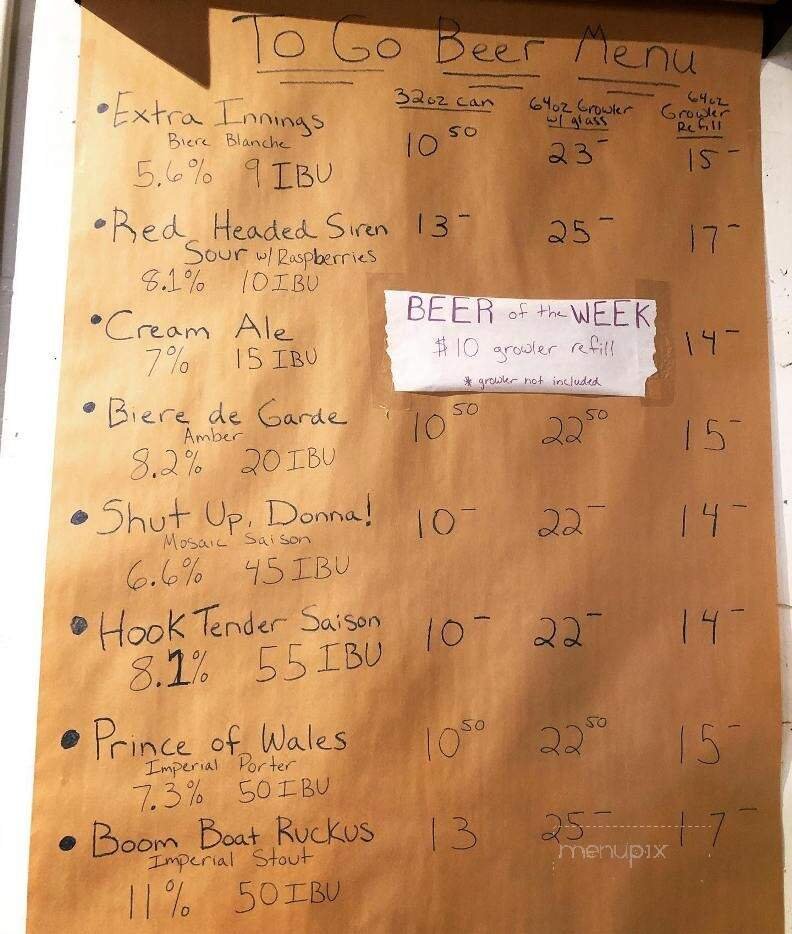 To Go Beer Menu
32oz can 64oz Growler w/ glass 64oz Growler Refill
• Extra Innings 10 50 23 - 15 -
Biere Blanche
5.6% 9 IBU
• Red Headed Siren 13 - 25 - 17 -
Sour w/ Raspberries
8.1% 10 IBU
BEER of the WEEK
$10 growler refill
* growler not included
• Cream Ale 14 -
7% 15 IBU
• Biere de Garde 10 50 22 50 15 -
Amber
8.2% 20 IBU
• Shut Up, Donna! 10 - 22 - 14 -
Mosaic Saison
6.6% 45 IBU
• Hook Tender Saison 10 - 22 - 14 -
8.1% 55 IBU
• Prince of Wales 10 50 22 50 15 -
Imperial Porter
7.3% 50 IBU
• Boom Boat Ruckus 13 25 - 17 -
Imperial Stout
11% 50 IBU
menupix